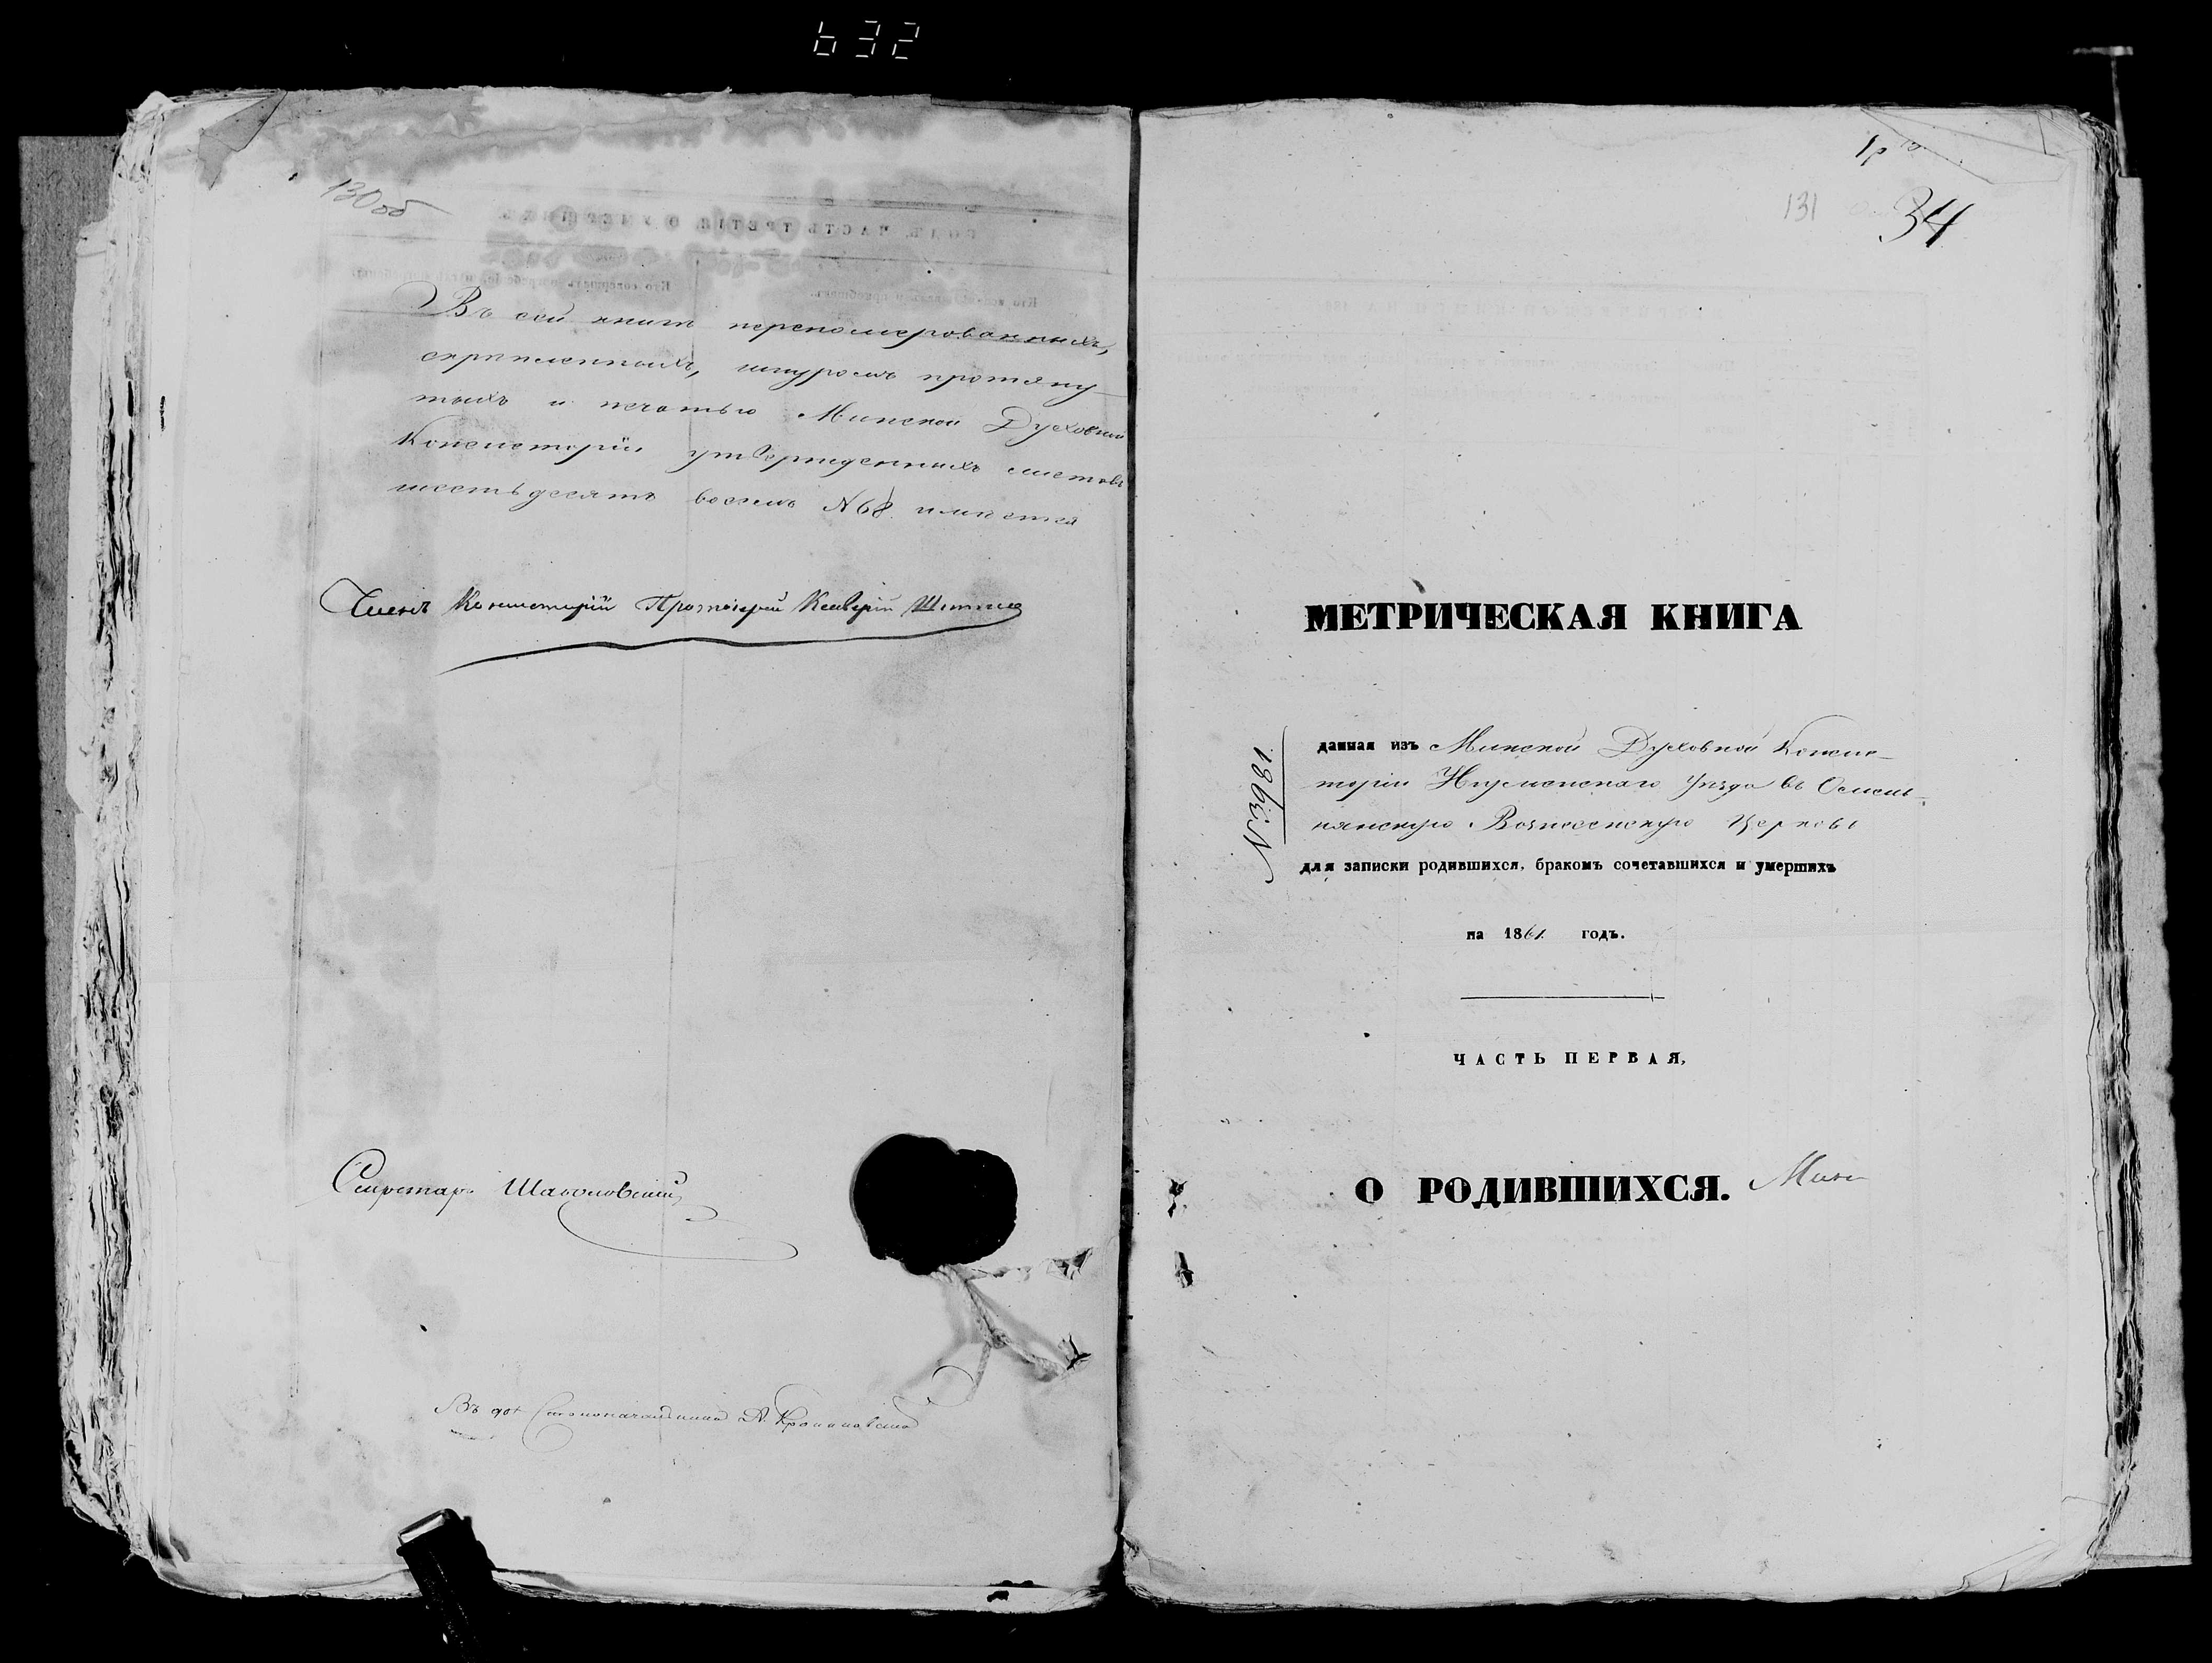 632
130об
Въ сей книгѣ переномерованныхъ,
скрѣпленныхъ, шнуромъ протяну-
тыхъ и печатью Минской Духовной
Консисторіи утвержденныхъ листовъ
шестьдесятъ восемь N 68. имѣется
Членъ Консисторіи Протоіерей
Секретарь
Въ дол. Столоначальника А.
131
34
МЕТРИЧЕСКАЯ КНИГА
N 1861
данная изъ Минской Духовной Консис-
торіи Игуменскаго Уѣзда въ
Вознесенскую Церковь
для записки родившихся, бракомъ сочетавшихся и умершихъ
на 1861 годъ.
ЧАСТЬ ПЕРВАЯ,
О РОДИВШИХСЯ.